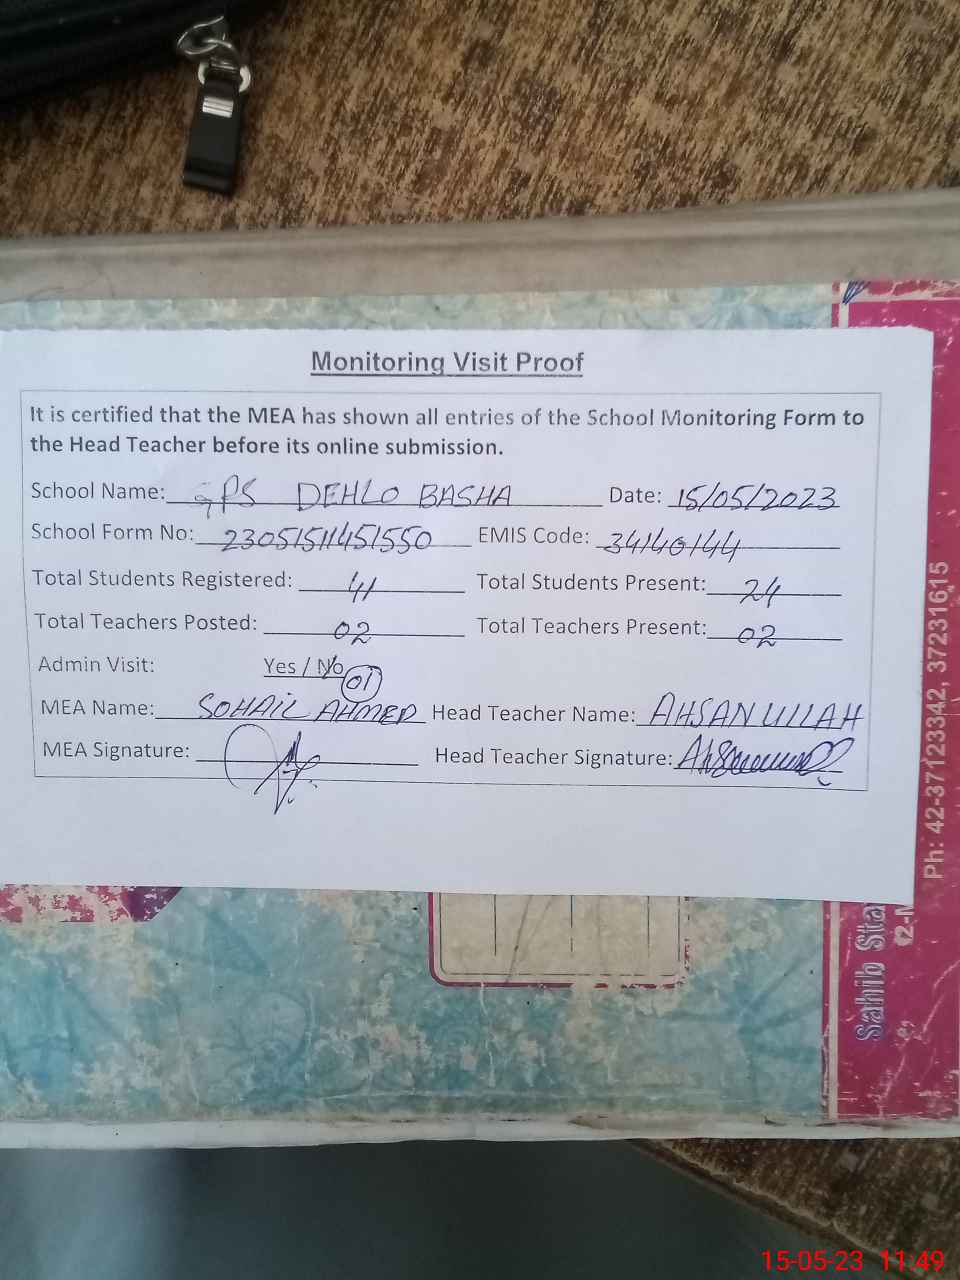 Monitoring Visit Proof
It is certified that the MEA has shown all entries of the School Monitoring Form to
the Head Teacher before its online submission.
School Name: GPS DEHLO BASHA Date: 15/05/2023
School Form No: 23051511451550 EMIS Code: 34140144
Total Students Registered: 41 Total Students Present: 24
Total Teachers Posted: 02 Total Teachers Present: 02
Admin Visit: Yes / No 01
MEA Name: SOHAIL AHMED Head Teacher Name: AHSAN ULLAH
MEA Signature: Head Teacher Signature:
Ph: 42-37123342, 37231615
Sahib Sta
15-05-23 11:49